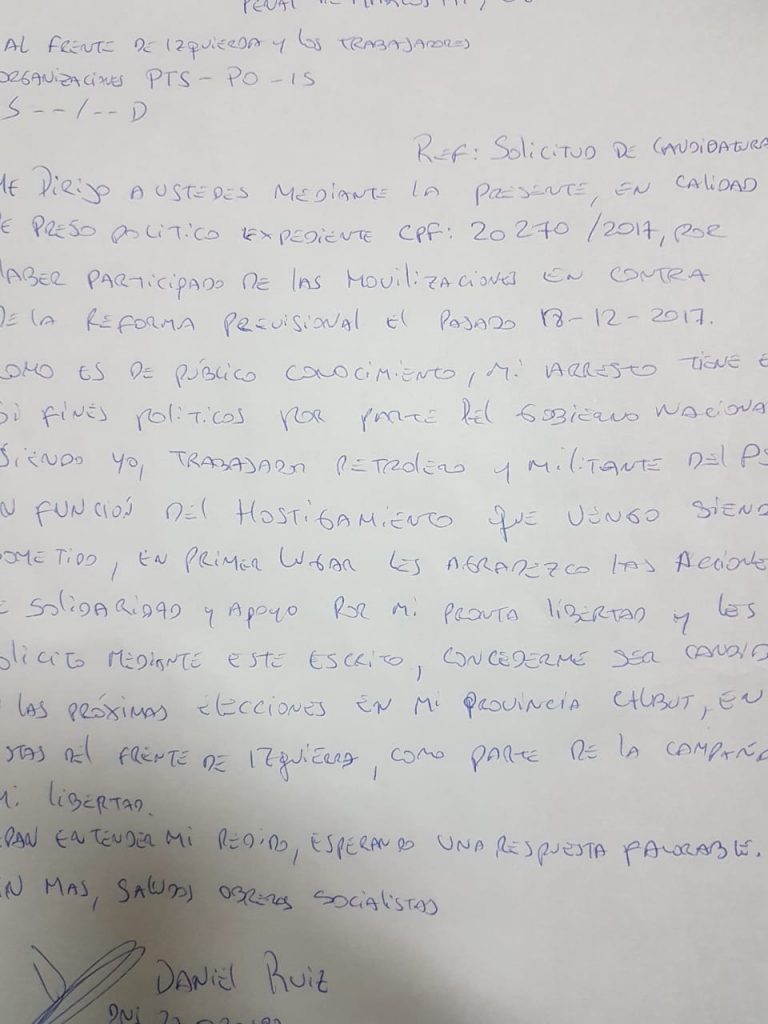 PENAL DE MARCOS PAZ,
AL FRENTE DE IZQUIERDA Y LOS TRABAJADORES
ORGANIZACIONES PTS - PO - IS
S - - / - - D
REF: SOLICITUD DE CANDIDATURA
ME DIRIJO A USTEDES MEDIANTE LA PRESENTE, EN CALIDAD
E PRESO POLITICO EXPEDIENTE CPF: 20270/2017, POR
HABER PARTICIPADO DE LAS MOVILIZACIONES EN CONTRA
DE LA REFORMA PREVISIONAL EL PASADO 18-12-2017.
COMO ES DE PÚBLICO CONOCIMIENTO, MI ARRESTO TIENE E
SI FINES POLITICOS POR PARTE DEL GOBIERNO NACIONAL
SIENDO YO, TRABAJADOR PETROLERO Y MILITANTE DEL PS
N FUNCIÓN DEL HOSTIGAMIENTO QUE VENGO SIEND
OMETIDO, EN PRIMER LUGAR LES AGRADEZCO LAS ACCIONE
E SOLIDARIDAD Y APOYO POR MI PRONTA LIBERTAD Y LES
OLICITO MEDIANTE ESTE ESCRITO, CONCEDERME SER CANDID
LAS PRÓXIMAS ELECCIONES EN MI PROVINCIA CHUBUT, EN
STAS DEL FRENTE DE IZQUIERA, COMO PARTE DE LA CAMPAÑA
MI LIBERTAD.
EPAN ENTENDER MI PEDIDO, ESPERANDO UNA RESPUESTA FAVORABLE.
IN MAS, SALUDOS OBREROS SOCIALISTAS
DANIEL RUIZ
DNI